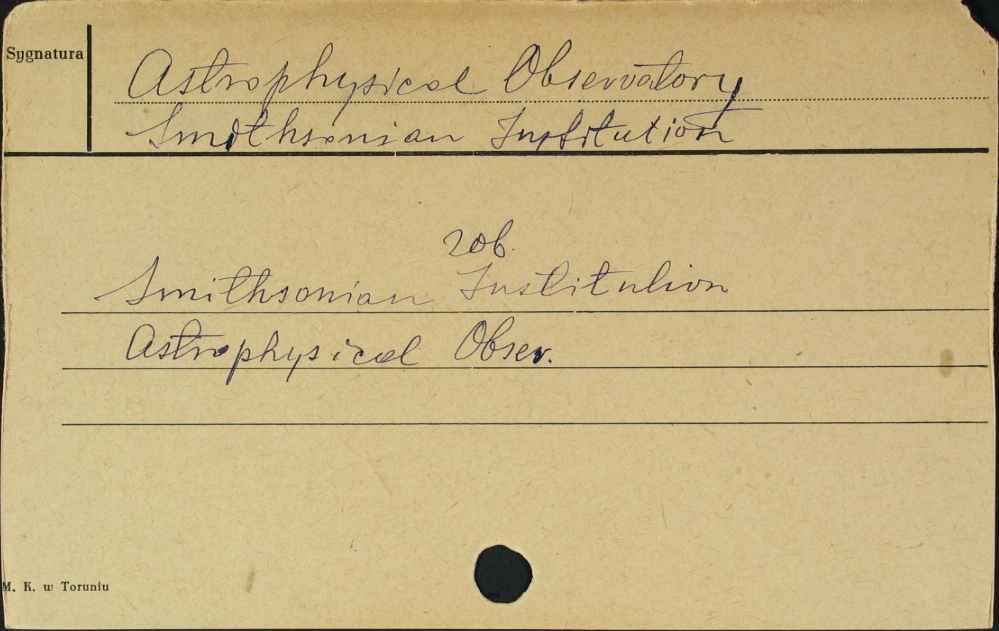 Sygnatura
Astrophysical Observatory
Smithsonian Institution
zob.
Smithsonian Institution
Astrophysical Obser.
M. K. w Toruniu